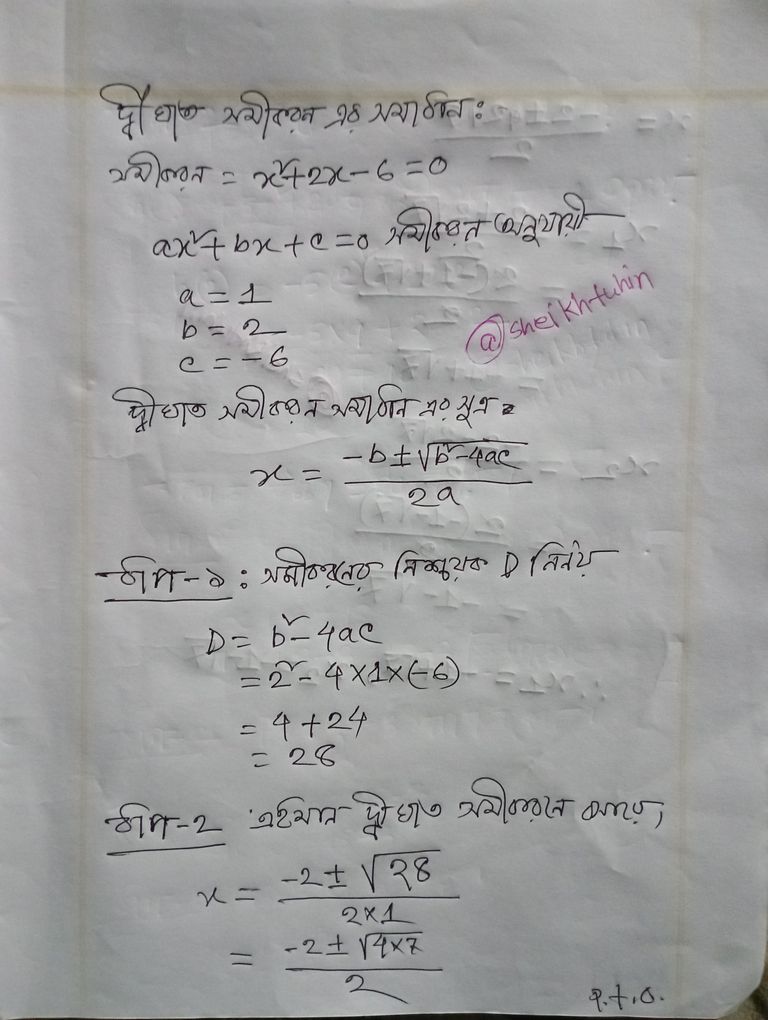 দ্বীঘাত সমীকরন এর সমাধান:
সমীকরন = x²+2x-6=0
ax²+bx+c=0 সমীকরন অনুযায়ী
a = 1
b = 2
c = -6
@sheikhtuhin
দ্বীঘাত সমীকরন সমাধান এর সূত্র =
x = (-b ± √(b²-4ac)) / 2a
ধাপ-১: সমীকরনের নিশ্চয়ক D নির্নয়
D = b²-4ac
= 2²-4×1×(-6)
= 4+24
= 28
ধাপ-২ এইমান দ্বীঘাত সমীকরনে বসায়,
x = (-2 ± √28) / 2×1
= (-2 ± √4×7) / 2
P.t.o.